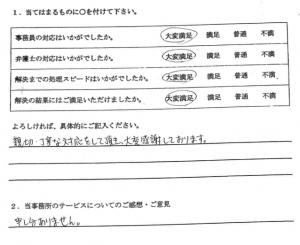 １．当てはまるものに〇を付けて下さい。
事務員の対応はいかがでしたか。 大変満足 満足 普通 不満
弁護士の対応はいかがでしたか。 大変満足 満足 普通 不満
解決までの処理スピードはいかがでしたか。 大変満足 満足 普通 不満
解決の結果にはご満足いただけましたか。 大変満足 満足 普通 不満
よろしければ、具体的にご記入ください。
親切・丁寧な対応をして頂き、大変感謝しております。
２．当事務所のサービスについてのご感想・ご意見
申し分ありません。